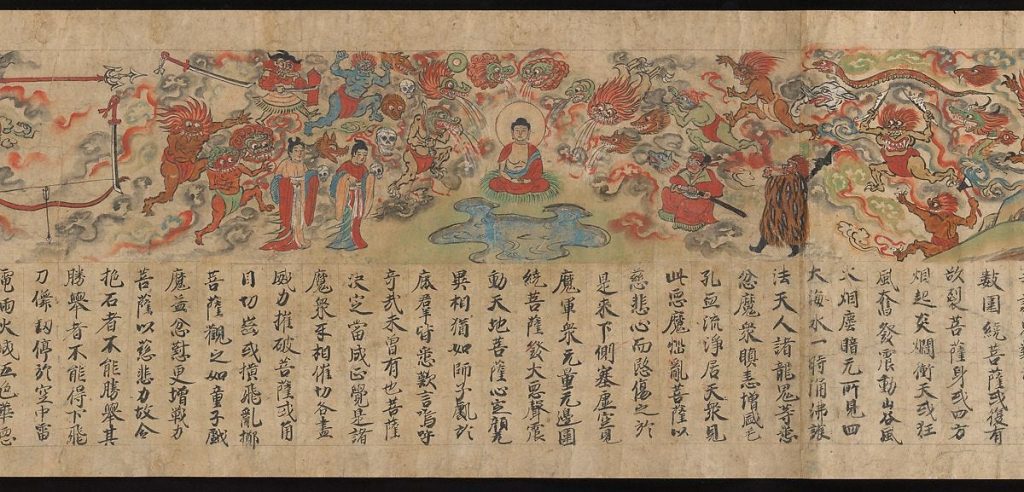 數圍繞菩薩或復有
欲裂菩薩身或四方
烟起炎爛衝天或狂
風奮發震動山谷風
火烟塵暗无所見四
大海水一時涌沸護
法天人諸龍鬼等悉
忿魔衆瞋恚增盛毛
孔血流淨居天衆見
此惡魔惱亂菩薩以
慈悲心而愍傷之於
是來下側塞虛空見
魔軍衆无量无邊圍
繞菩薩發大惡聲震
動天地菩薩心定顏
異相猶如師子處於
鹿群皆悉歎言嗚呼
奇哉未曾有也菩薩
決定當成正覺是諸
魔衆互相催切各盡
威力摧破菩薩或角
目切齒或橫飛亂擲
菩薩觀之如童子戲
魔益忿懟更增戰力
菩薩以慈悲力故令
抱石者不能勝舉其
勝舉者不能得下飛
刀儛劒停於空中雷
電雨火成五色華惡